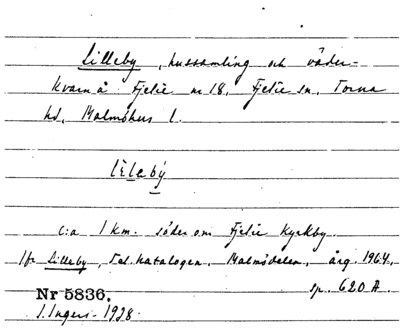 Lilleby, hussamling och väder-
kvarn å Fjelie nr 18, Fjelie sn, Torna
hd, Malmöhus l.
lìleby
c:a 1 km. söder om Fjelie kyrkby.
Jfr Lilleby, Tel.katalogen, Malmödelen, årg. 1964,
sp. 620 A.
Nr 5836.
I. Ingers 1928